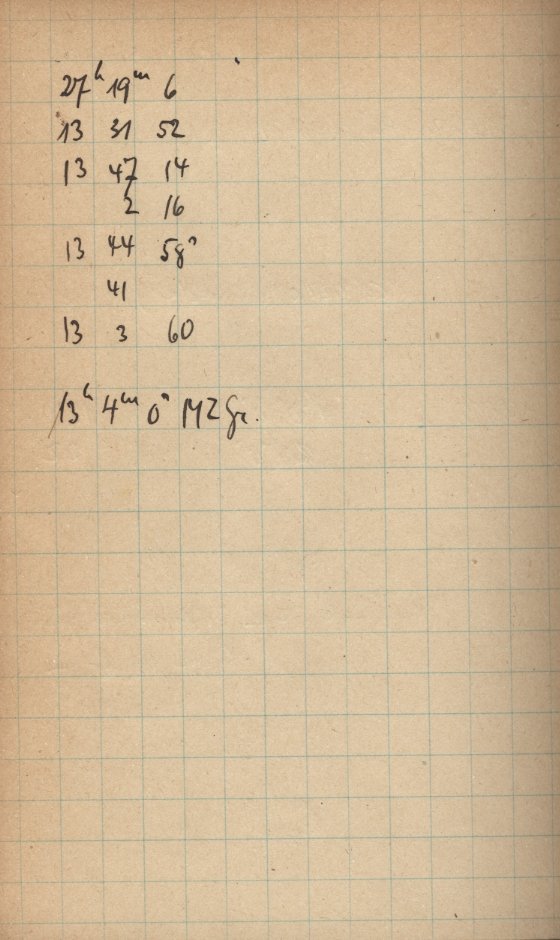 27ʰ 19ᵐ 6
13 31 52
13 47 14
2 16
13 44 58ˢ
41
13 3 60
13ʰ 4ᵐ 0ˢ MZ Gr.